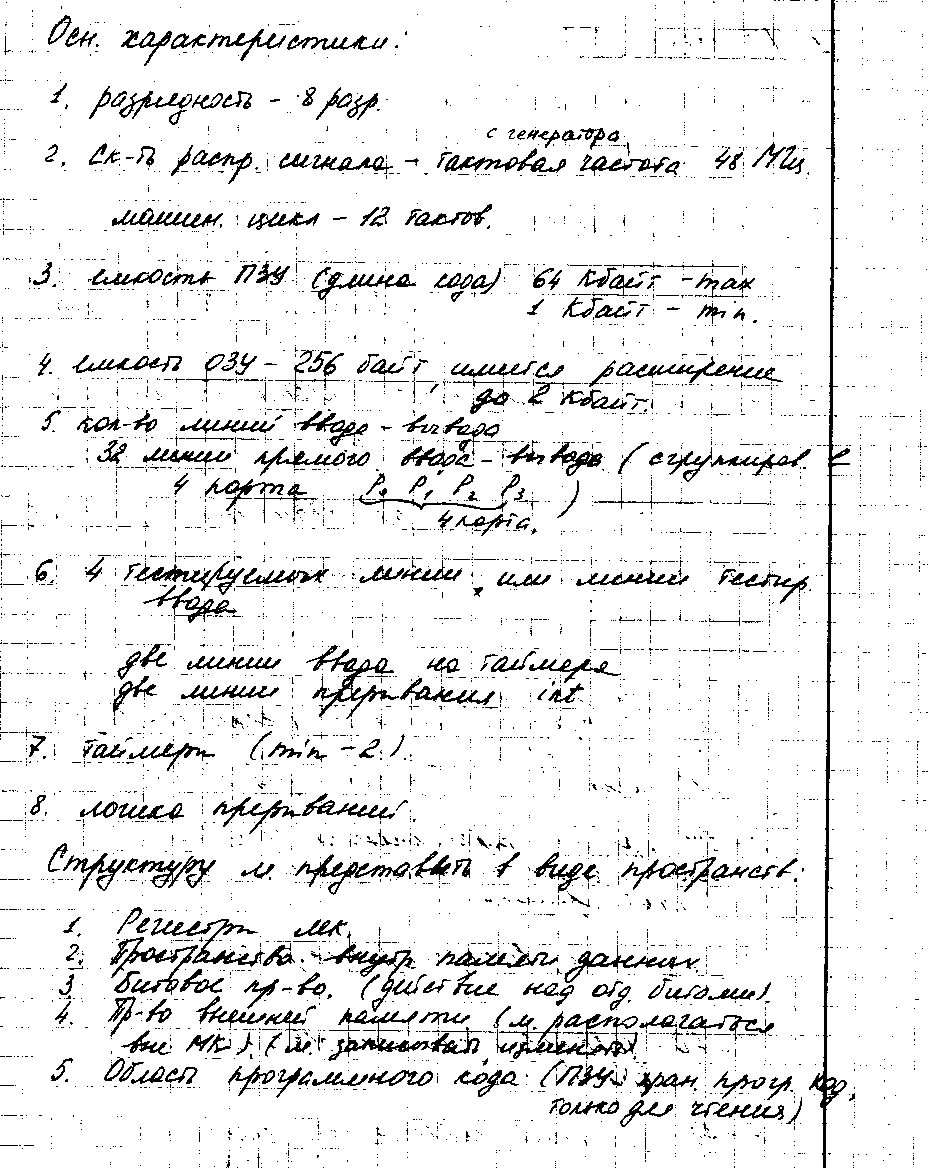 Осн. характеристики:
1. разрядность - 8 разр.
с генератора
2. Ск-ть распр. сигнала - тактовая частота 48 МГц
машин. цикл - 12 тактов.
3. емкость ПЗУ (длина кода) 64 Кбайт - max
1 Кбайт - min.
4. емкость ОЗУ - 256 байт, имеется расширение
до 2 Кбайт.
5. кол-во линий ввода - вывода
32 линии прямого ввода - вывода (сгруппиров. в
4 порта P0 P1 P2 P3 )
4 порта.
6. 4 тестируемых линии, или линии тестир.
ввода
две линии ввода на таймера
две линии прерывания int
7. таймеры (min - 2.)
8. логика прерываний.
Структуру м. представить в виде пространств:
1. Регистры мк.
2. Пространство внутр памяти данных
3. Битовое пр-во. (действие над отд. битами).
4. Пр-во внешней памяти (м. располагаться
вне МК) (м. записывать, изменять)
5. Область программного кода (ПЗУ хран. прогр. код,
только для чтения)